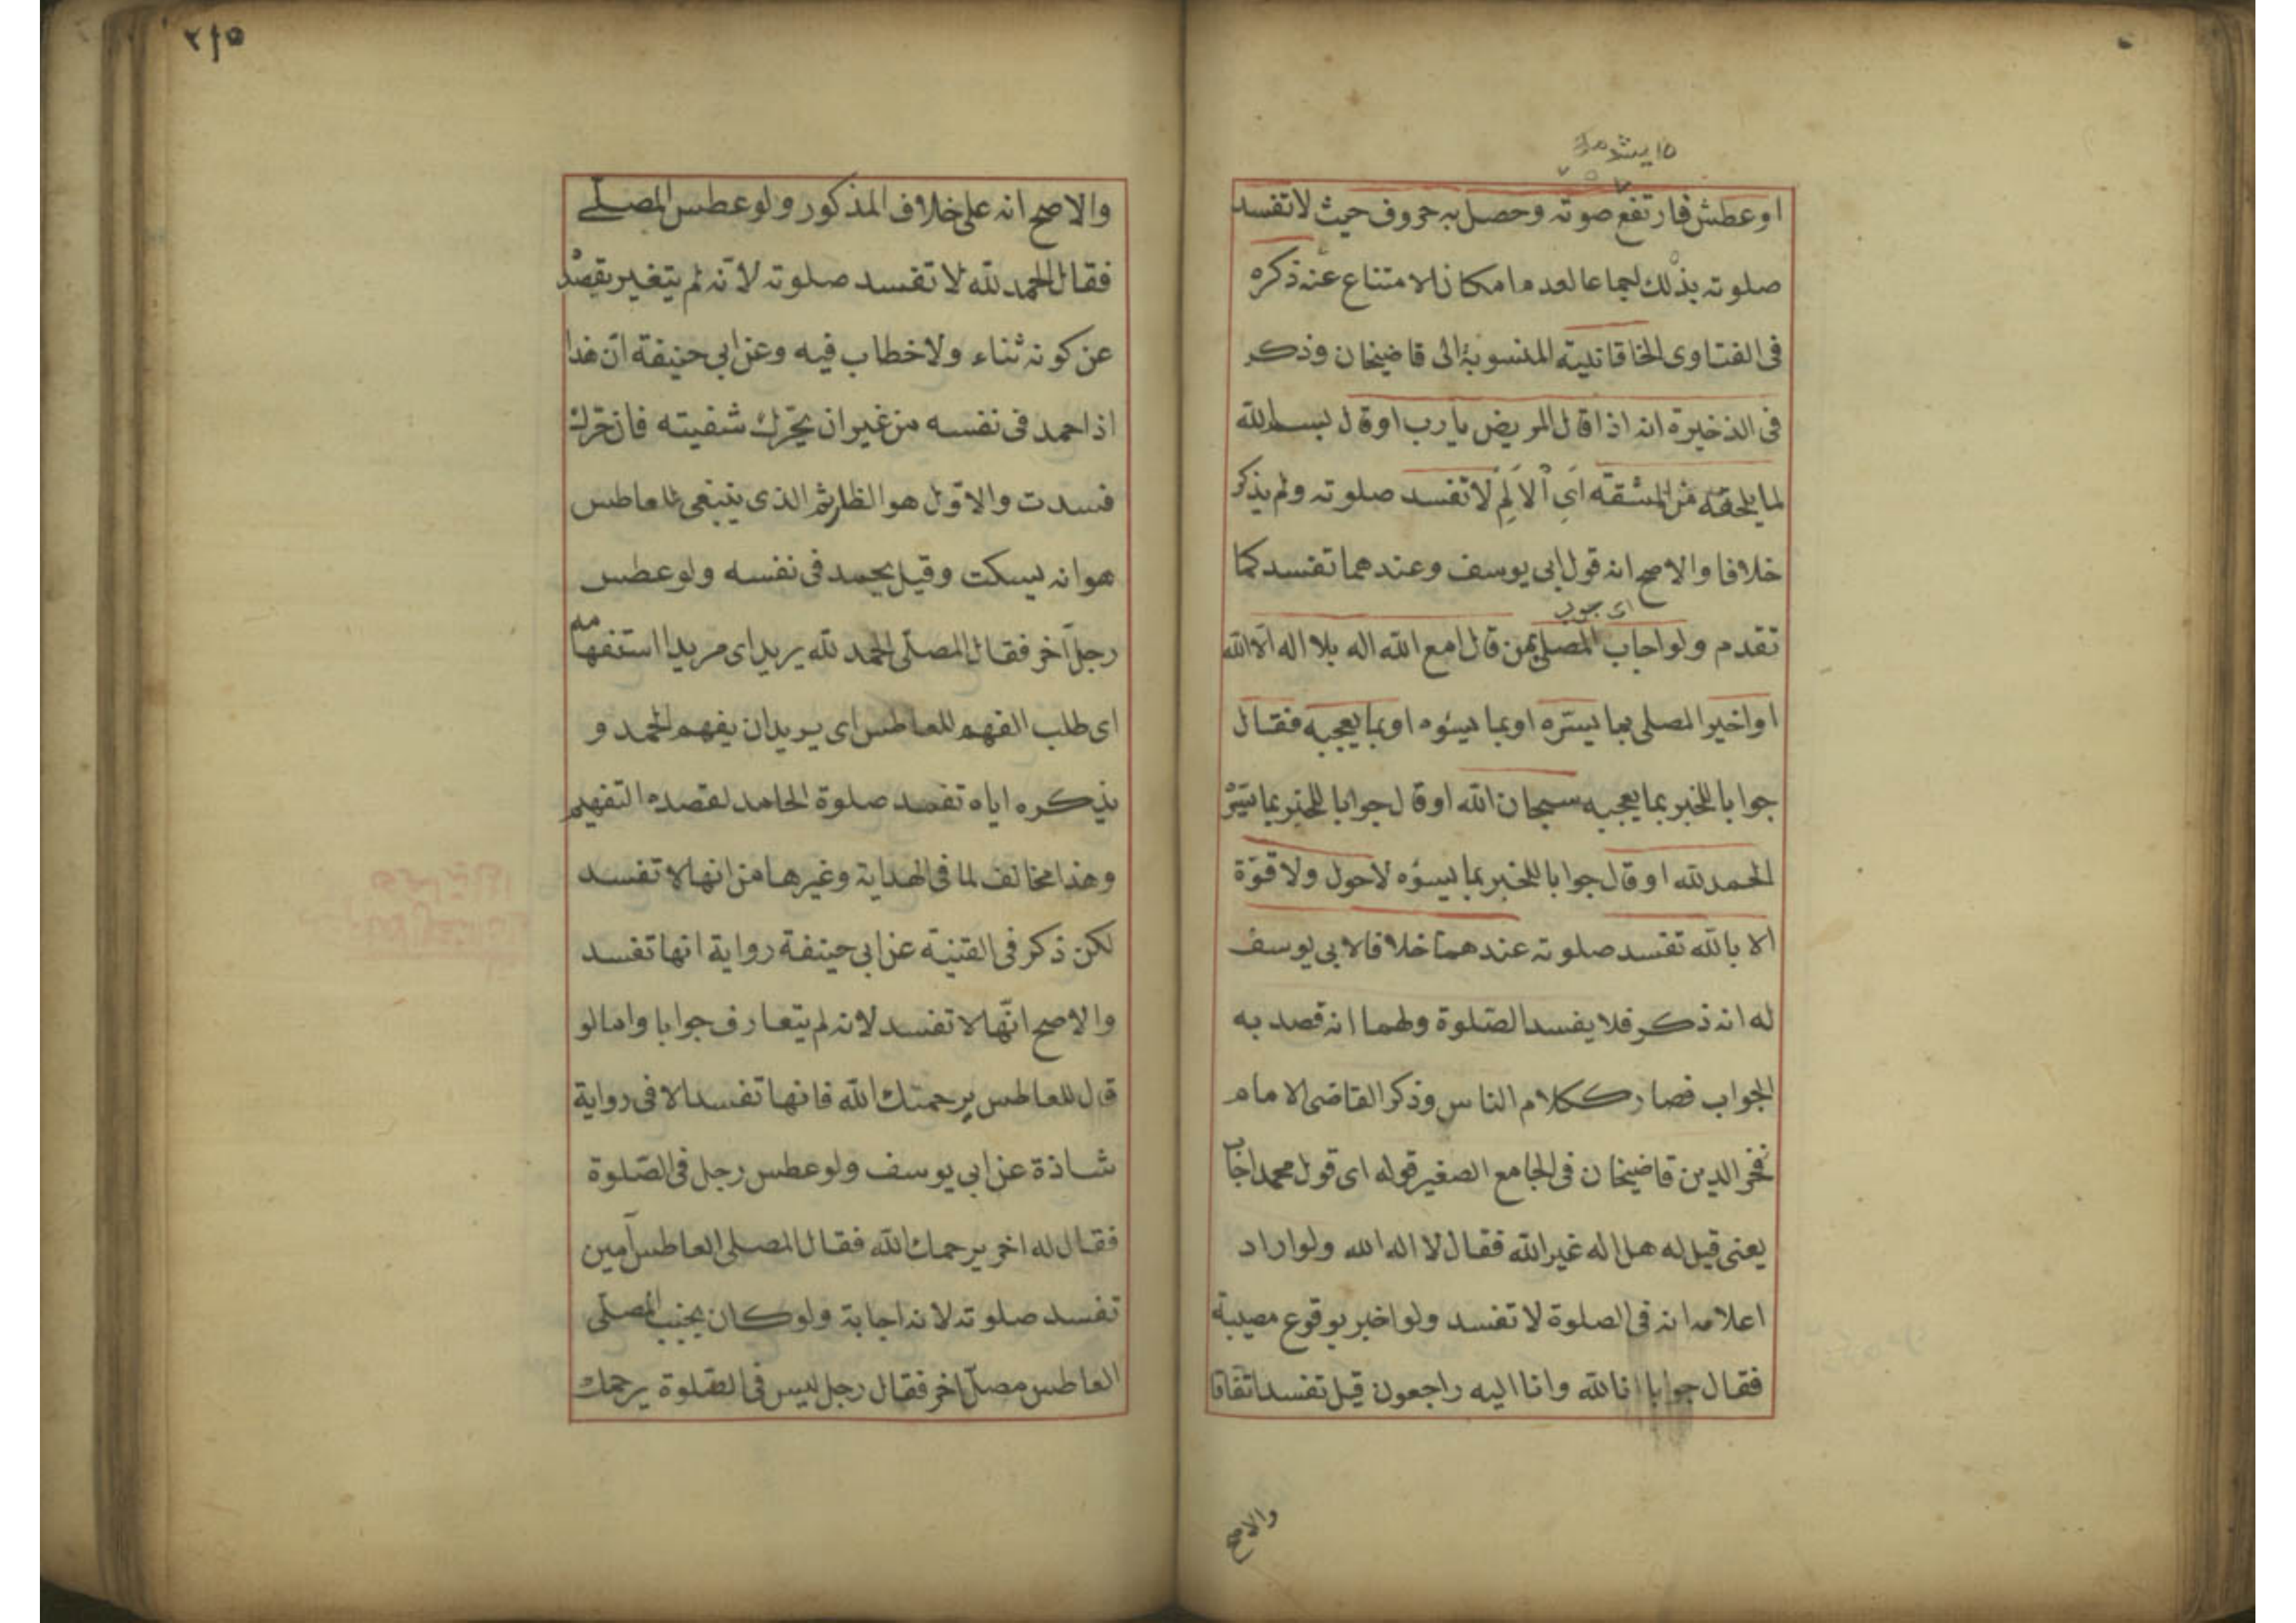 او عطش فارتفع صوته وحصل به حروف حيث لا تفسد
صلوته بذلك اجماعا لعدم امكان الامتناع عنه ذكره
فى الفتاوى الخاقانية المنسوبة الى قاضيخان وذكر
فى الذخيرة انه اذا قال المريض يا رب او قال بسم الله
لما يلحقه من المشقة اى الالم لا تفسد صلوته ولم يذكر
خلافا والاصح انه قول ابى يوسف وعندهما تفسد كما
اى بجواب
تقدم ولو اجاب المصلى بمن قال امع الله اله بلا اله الا الله
او اخبر المصلى بما يسره او بما يسؤه او بما يعجبه فقال
جوابا للخبر بما يعجبه سبحان الله او قال جوابا للخبر بما يسر
الحمد لله او قال جوابا للخبر بما يسؤه لا حول ولا قوّة
الا بالله تفسد صلوته عندهما خلافا لابى يوسف
له انه ذكر فلا يفسد الصّلوة ولهما انه قصد به
الجواب فصار ككلام الناس وذكر القاضى الامام
فخر الدين قاضيخان فى الجامع الصغير قوله اى قول محمد اجاب
يعنى قيل له هل اله غير الله فقال لا اله الا الله ولو اراد
اعلامه انه فى الصلوة لا تفسد ولو اخبر بوقوع مصيبة
فقال جوابا انا لله وانا اليه راجعون قيل تفسد اتفاقا
والاصح
٢١٥
والاصح انه على خلاف المذكور ولو عطس المصلّى
فقال الحمد لله لا تفسد صلوته لانّه لم يتغير بقصد
عن كونه ثناء ولا خطاب فيه وعن ابى حنيفة انّ هذا
اذا حمد فى نفسه من غير ان يحّرك شفيته فان حّرك
فسدت والاوّل هو الظاهر ثم الذى ينبغى للعاطس
هو انه يسكت وقيل يحمد فى نفسه ولو عطس
رجل آخر فقال المصلّى الحمد لله يريد اى مريدا استفهامه
اى طلب الفهم للعاطس اى يريد ان يفهم الحمد و
يذكره اياه تفسد صلوة الحامد لقصده التفهيم
وهذا مخالف لما فى الهداية وغيرها من انها لا تفسد
لكن ذكر فى القنية عن ابى حنيفة رواية انها تفسد
والاصح انّها لا تفسد لانه لم يتعارف جوابا واما لو
قال للعاطس يرحمتك الله فانها تفسد الا فى رواية
شاذة عن ابى يوسف ولو عطس رجل فى الصّلوة
فقال له اخر يرحمك الله فقال المصلى العاطس آمين
تفسد صلوته لانه اجابة ولو كان بجنب المصلّى
العاطس مصلّ اخر فقال رجل ليس فى الصّلوة يرحمك